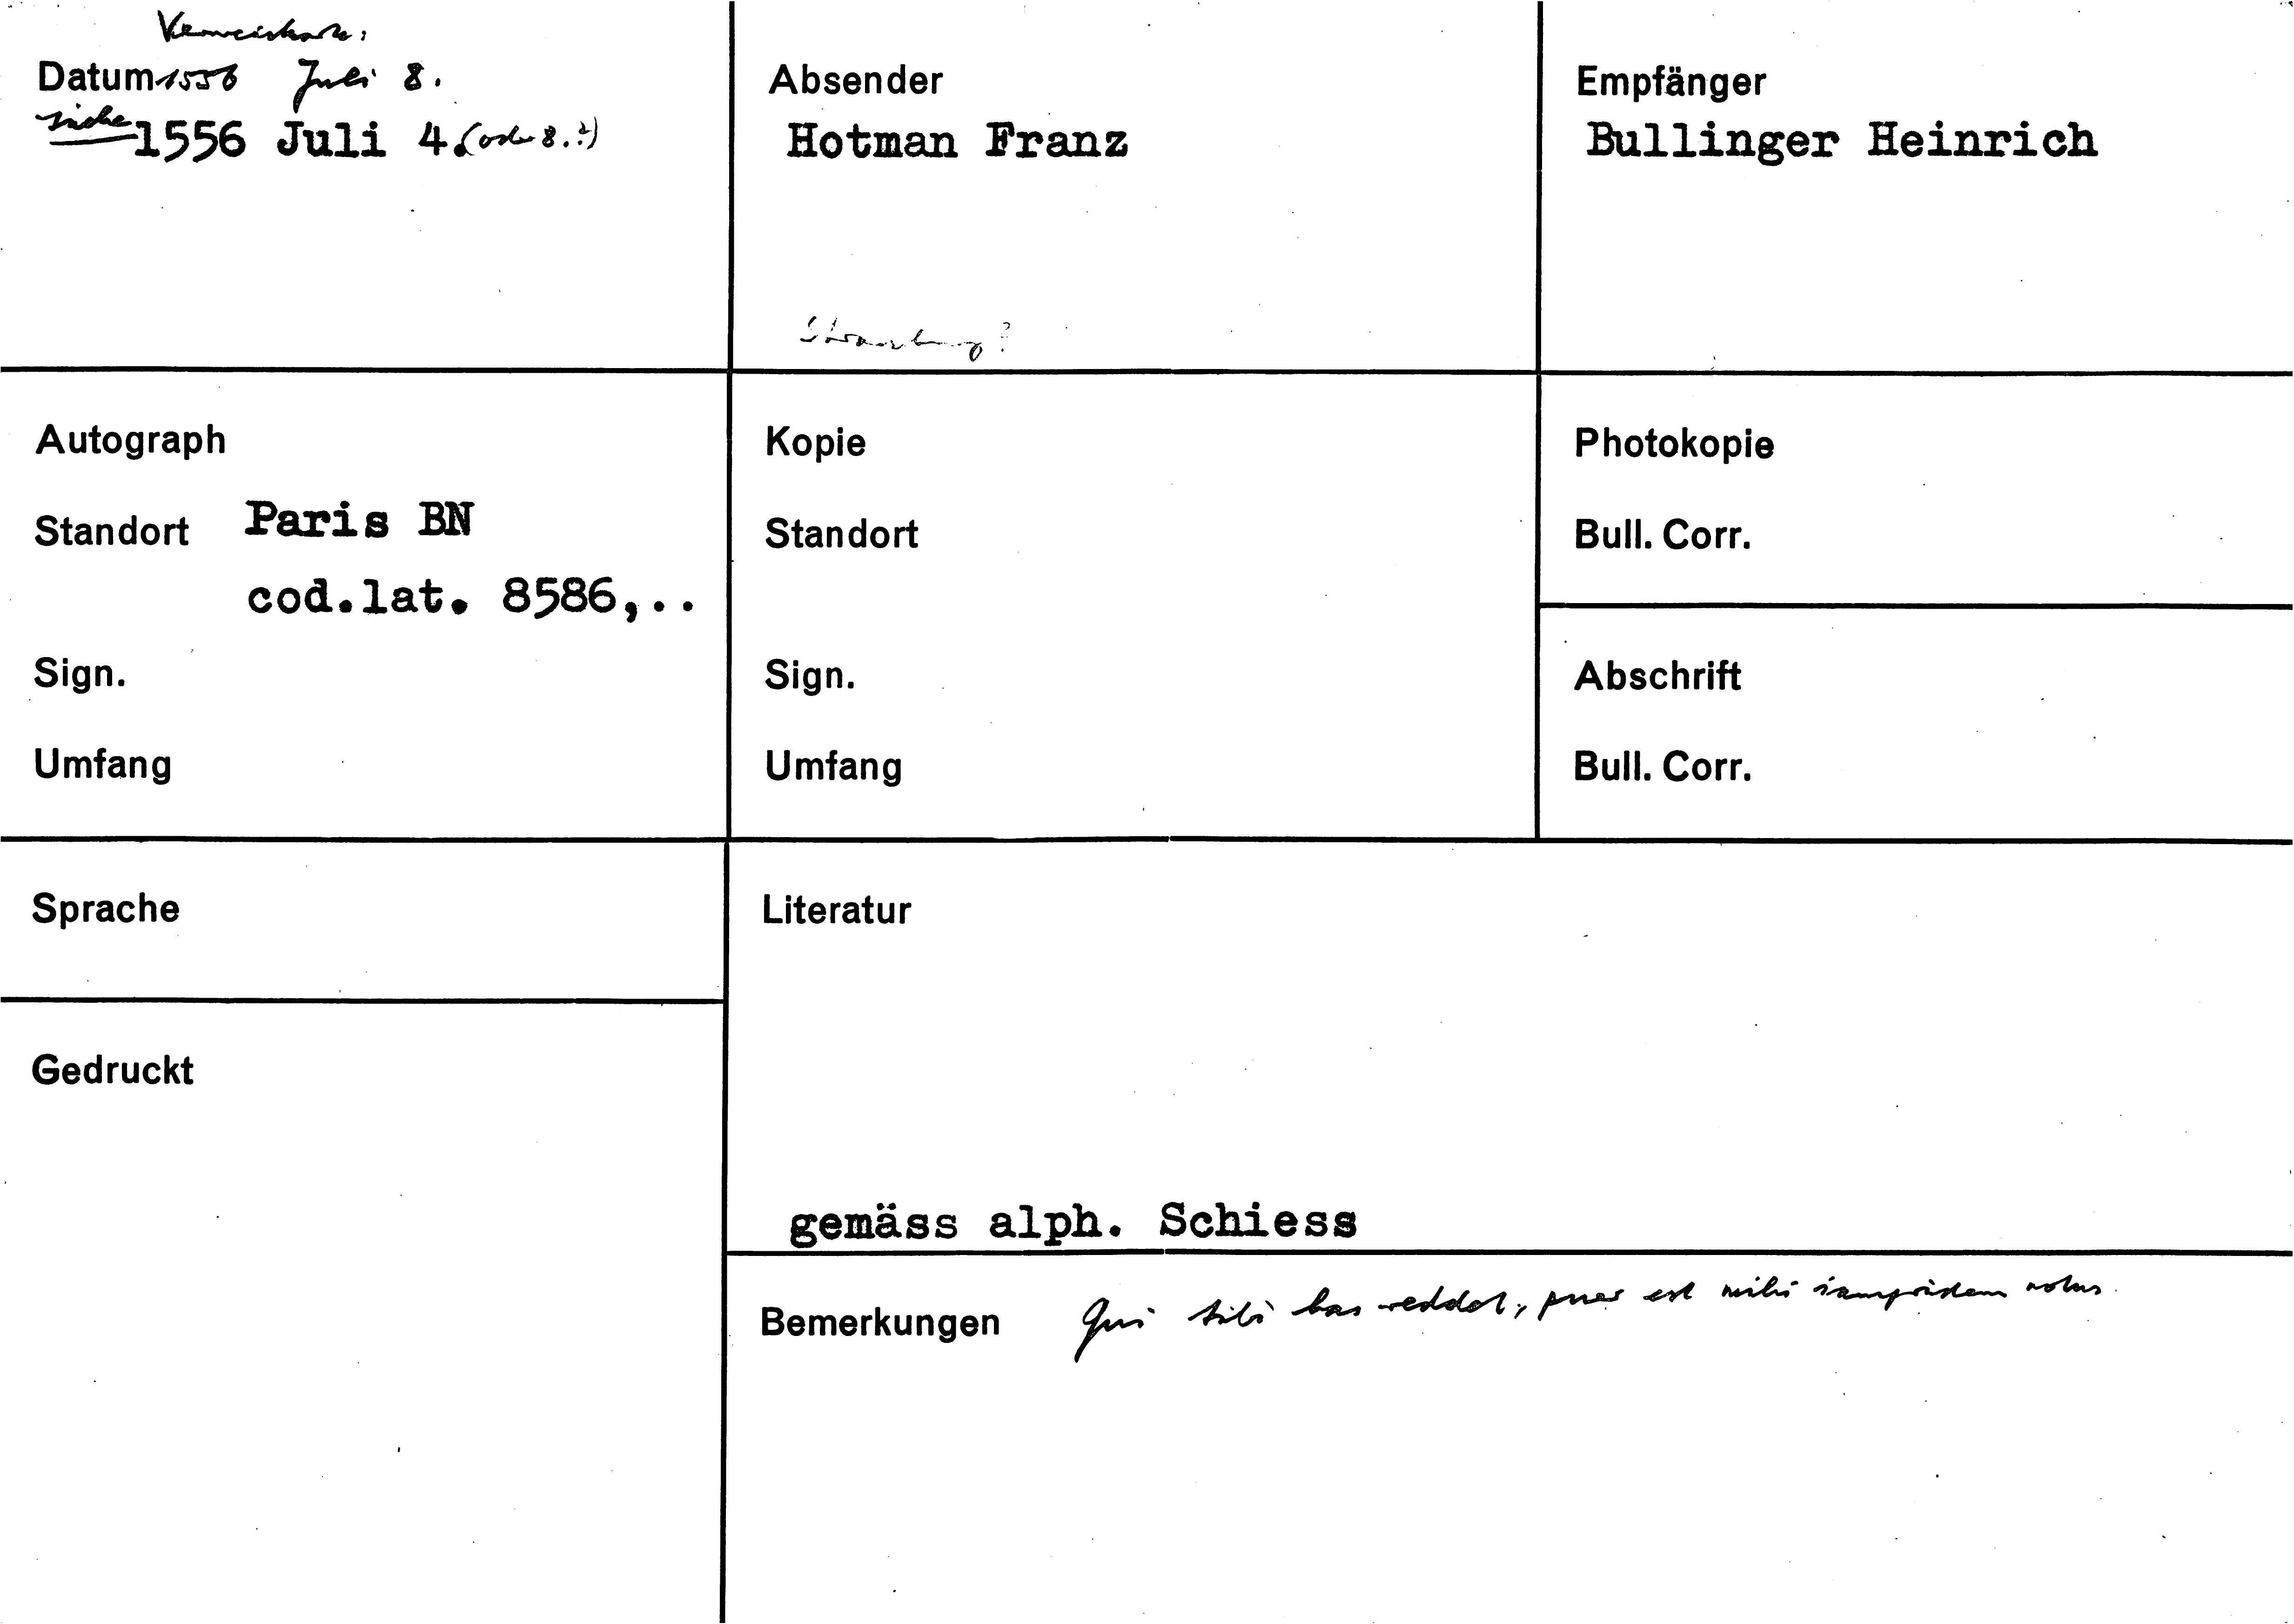 Verweiskarte:
Datum 1556 Juli 8.
siehe 1556 Juli 4. (oder 8.?)
Absender
Hotman Franz
Strassburg?
Empfänger
Bullinger Heinrich
Autograph
Standort Paris BN
cod.lat. 8586,..
Sign.
Umfang
Kopie
Standort
Sign.
Umfang
Photokopie
Bull. Corr.
Abschrift
Bull. Corr.
Sprache
Gedruckt
Literatur
gemäss alph. Schiess
Bemerkungen Qui tibi has reddet, puer est mihi iampridem notus